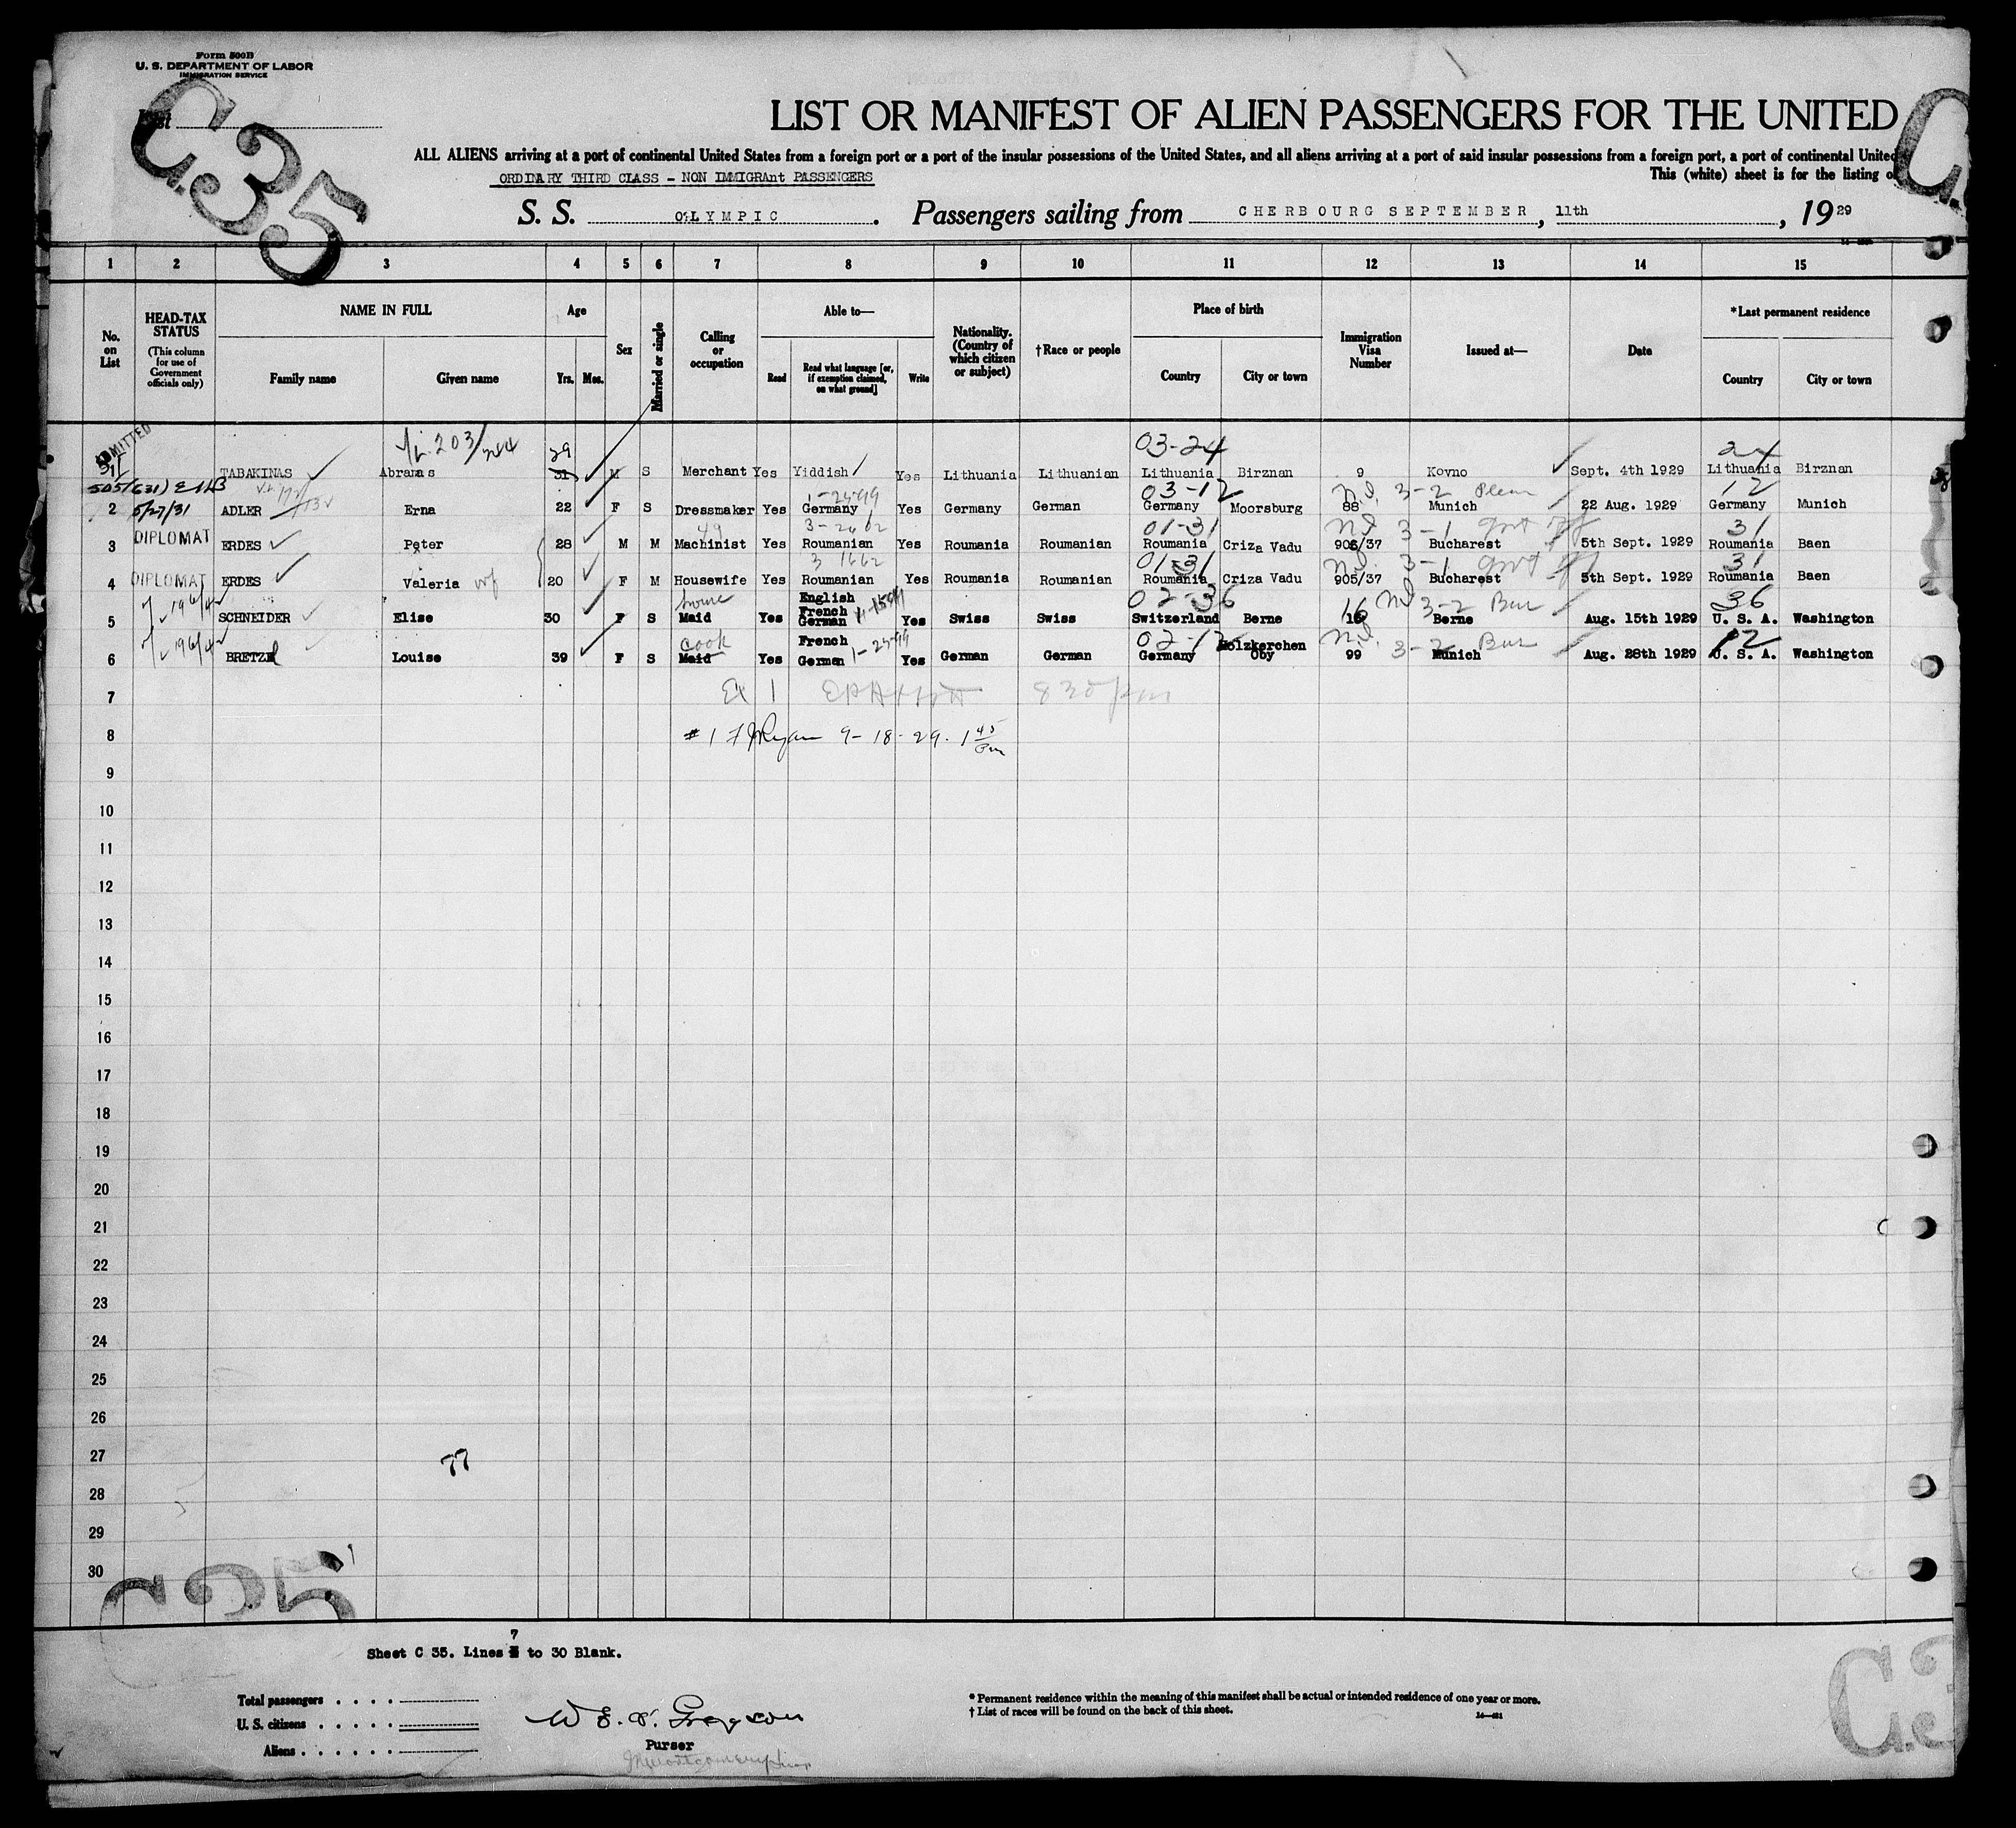 Form 500B
U. S. DEPARTMENT OF LABOR
IMMIGRATION SERVICE
C.35
List
LIST OR MANIFEST OF ALIEN PASSENGERS FOR THE UNITED
ALL ALIENS arriving at a port of continental United States from a foreign port or a port of the insular possessions of the United States, and all aliens arriving at a port of said insular possessions from a foreign port, a port of continental United
ORDINARY THIRD CLASS - NON IMMIGRAnt PASSENGERS
This (white) sheet is for the listing o
S. S. OLYMPIC. Passengers sailing from CHERBOURG SEPTEMBER, 11th, 1929
1 2 3 4 5 6 7 8 9 10 11 12 13 14 15
No. on List
HEAD-TAX STATUS (This column for use of Government officials only)
NAME IN FULL
Family name Given name
Age
Yrs. Mos.
Sex
Married or single
Calling or occupation
Able to—
Read
Read what language [or, if exemption claimed, on what ground]
Write
Nationality. (Country of which citizen or subject)
†Race or people
Place of birth
Country City or town
Immigration Visa Number
Issued at—
Date
*Last permanent residence
Country City or town
ADMITTED 203/ 29 03-24 24
TABAKINAS Abramas 31 M S Merchant Yes Yiddish Yes Lithuania Lithuanian Lithuania Birznan 9 Kovno Sept. 4th 1929 Lithuania Birznan
505/631) 03-12 3-2 12
2 5/27/31 ADLER Erna 22 F S Dressmaker Yes Germany Yes Germany German Germany Moorsburg 88 Munich 22 Aug. 1929 Germany Munich
49 3-2662 01-31 3-1 Govt 31
3 DIPLOMAT ERDES Peter 28 M M Machinist Yes Roumanian Yes Roumania Roumanian Roumania Criza Vadu 906/37 Bucharest 5th Sept. 1929 Roumania Baen
3 1662 01-31 3-1 Govt 31
4 DIPLOMAT ERDES Valeria wf 20 F M Housewife Yes Roumanian Yes Roumania Roumanian Roumania Criza Vadu 905/37 Bucharest 5th Sept. 1929 Roumania Baen
English 02-36 16 3-2 36
5 SCHNEIDER Elise 30 F S Maid Yes French German Yes Swiss Swiss Switzerland Berne 16 Berne Aug. 15th 1929 U. S. A. Washington
Cook French 02-12 Holzkerchen 3-2 12
6 BRETZEl Louise 39 F S Maid Yes German Yes German German Germany Oby 99 Munich Aug. 28th 1929 U. S. A. Washington
7 830 pm
8 #1 F J Ryan 9-18-29. 1 45 Pm
9
10
11
12
13
14
15
16
17
18
19
20
21
22
23
24
25
26
27 77
28
29
30
C35
Sheet C 35. Lines 7 to 30 Blank.
Total passengers
U. S. citizens
Aliens
Purser
* Permanent residence within the meaning of this manifest shall be actual or intended residence of one year or more.
† List of races will be found on the back of this sheet.
C.3